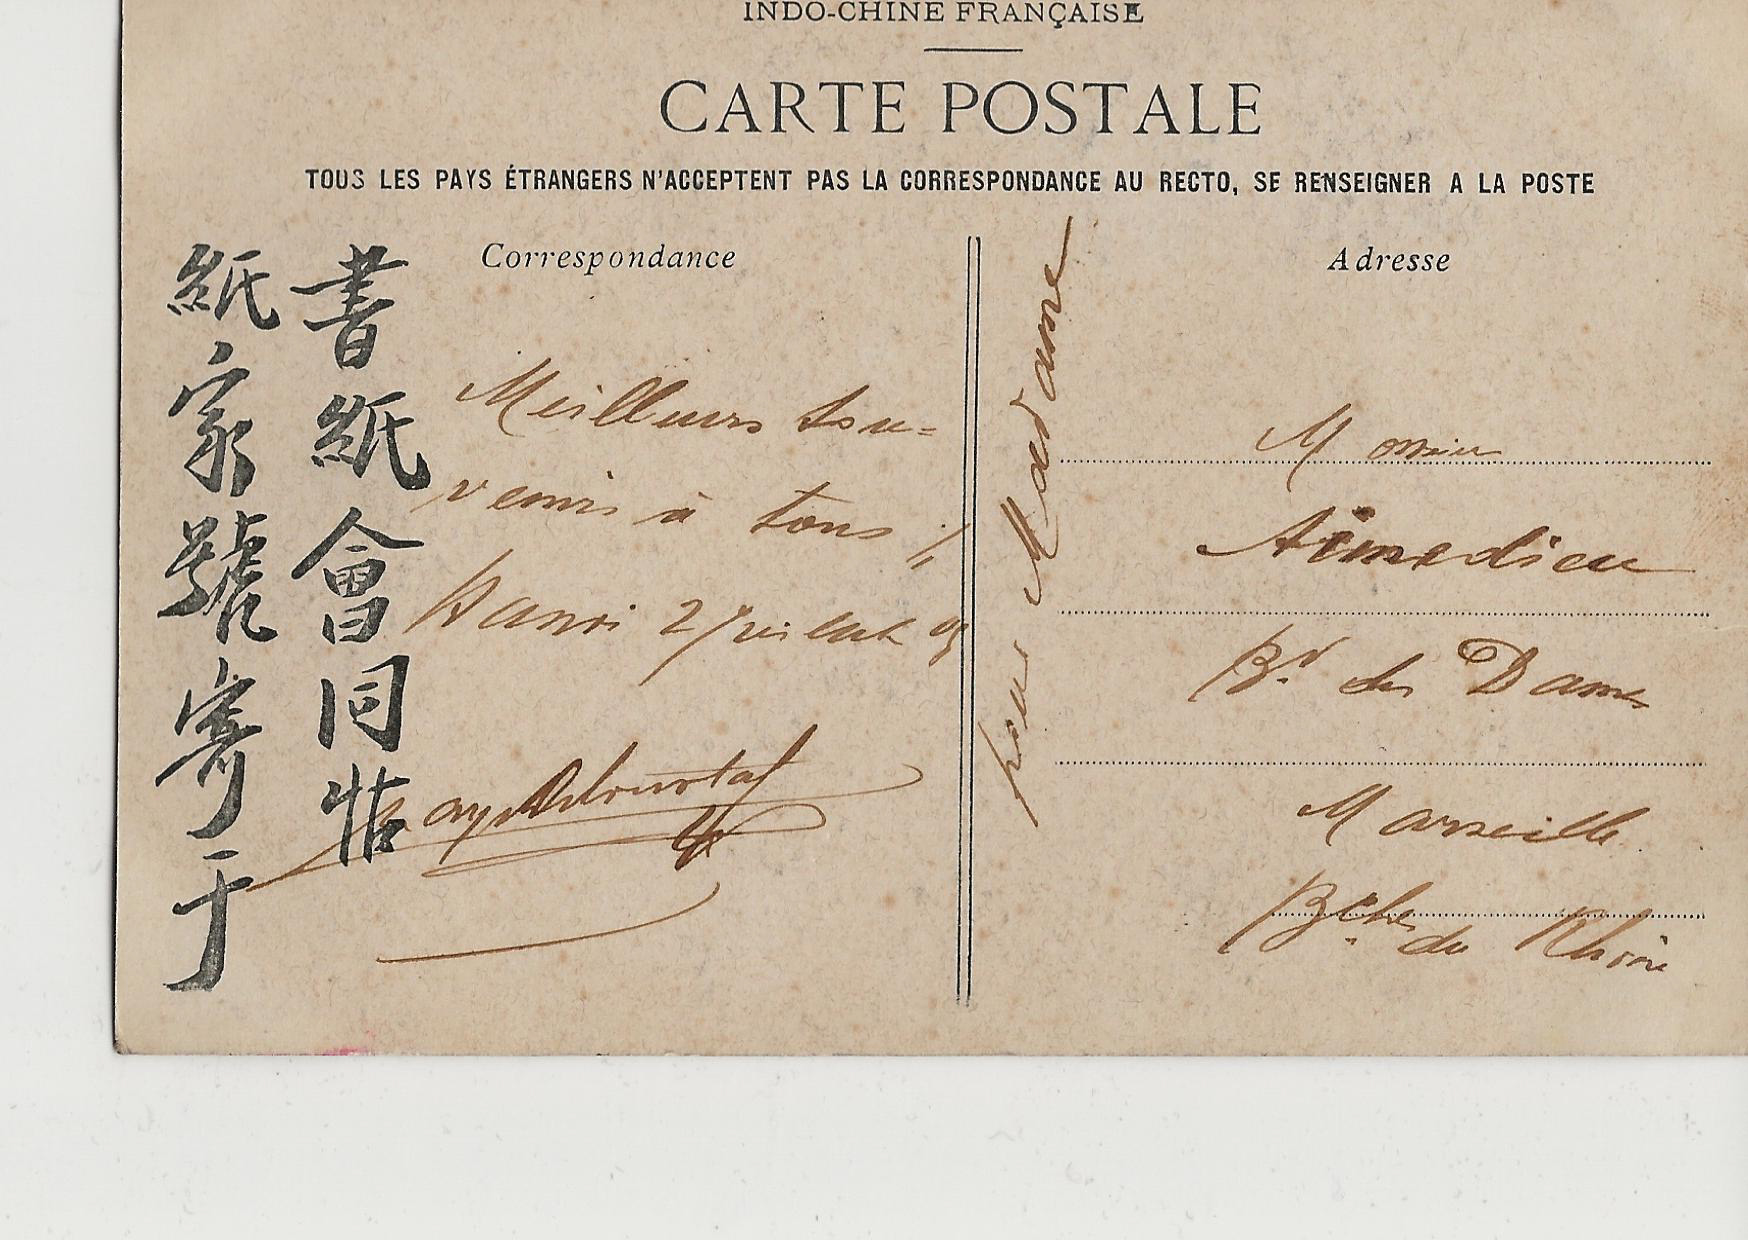 INDO-CHINE FRANÇAISE
CARTE POSTALE
TOUS LES PAYS ÉTRANGERS N'ACCEPTENT PAS LA CORRESPONDANCE AU RECTO, SE RENSEIGNER A LA POSTE
Correspondance
書紙會同帖
紙家號寄于
Meilleurs sou-
venirs à tous
Hanoi 2 Juillet
Adresse
pour Madame
Monsieur
Aimedieu
Bd des Dames
Marseille
Bches du Rhône